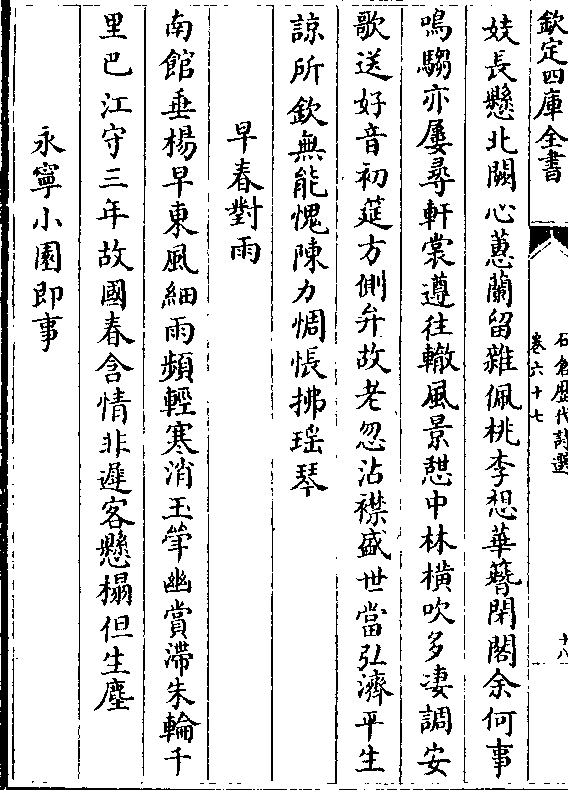 欽定四庫全書
石倉歷代詩選
卷六十七
十八
妓長懸北闕心蕙蘭留雜佩桃李想華簪閉閤余何事
鳴騶亦屢尋軒裳遵往轍風景憇中林橫吹多凄調安
歌送好音初筵方側弁故老忽沾襟盛世當弘濟平生
諒所欽無能愧陳力惆悵拂瑶琴
早春對雨
南館垂楊早東風細雨頻輕寒消玉斚幽賞滯朱輪千
里巴江守三年故國春含情非遲客懸榻但生塵
永寧小園即事